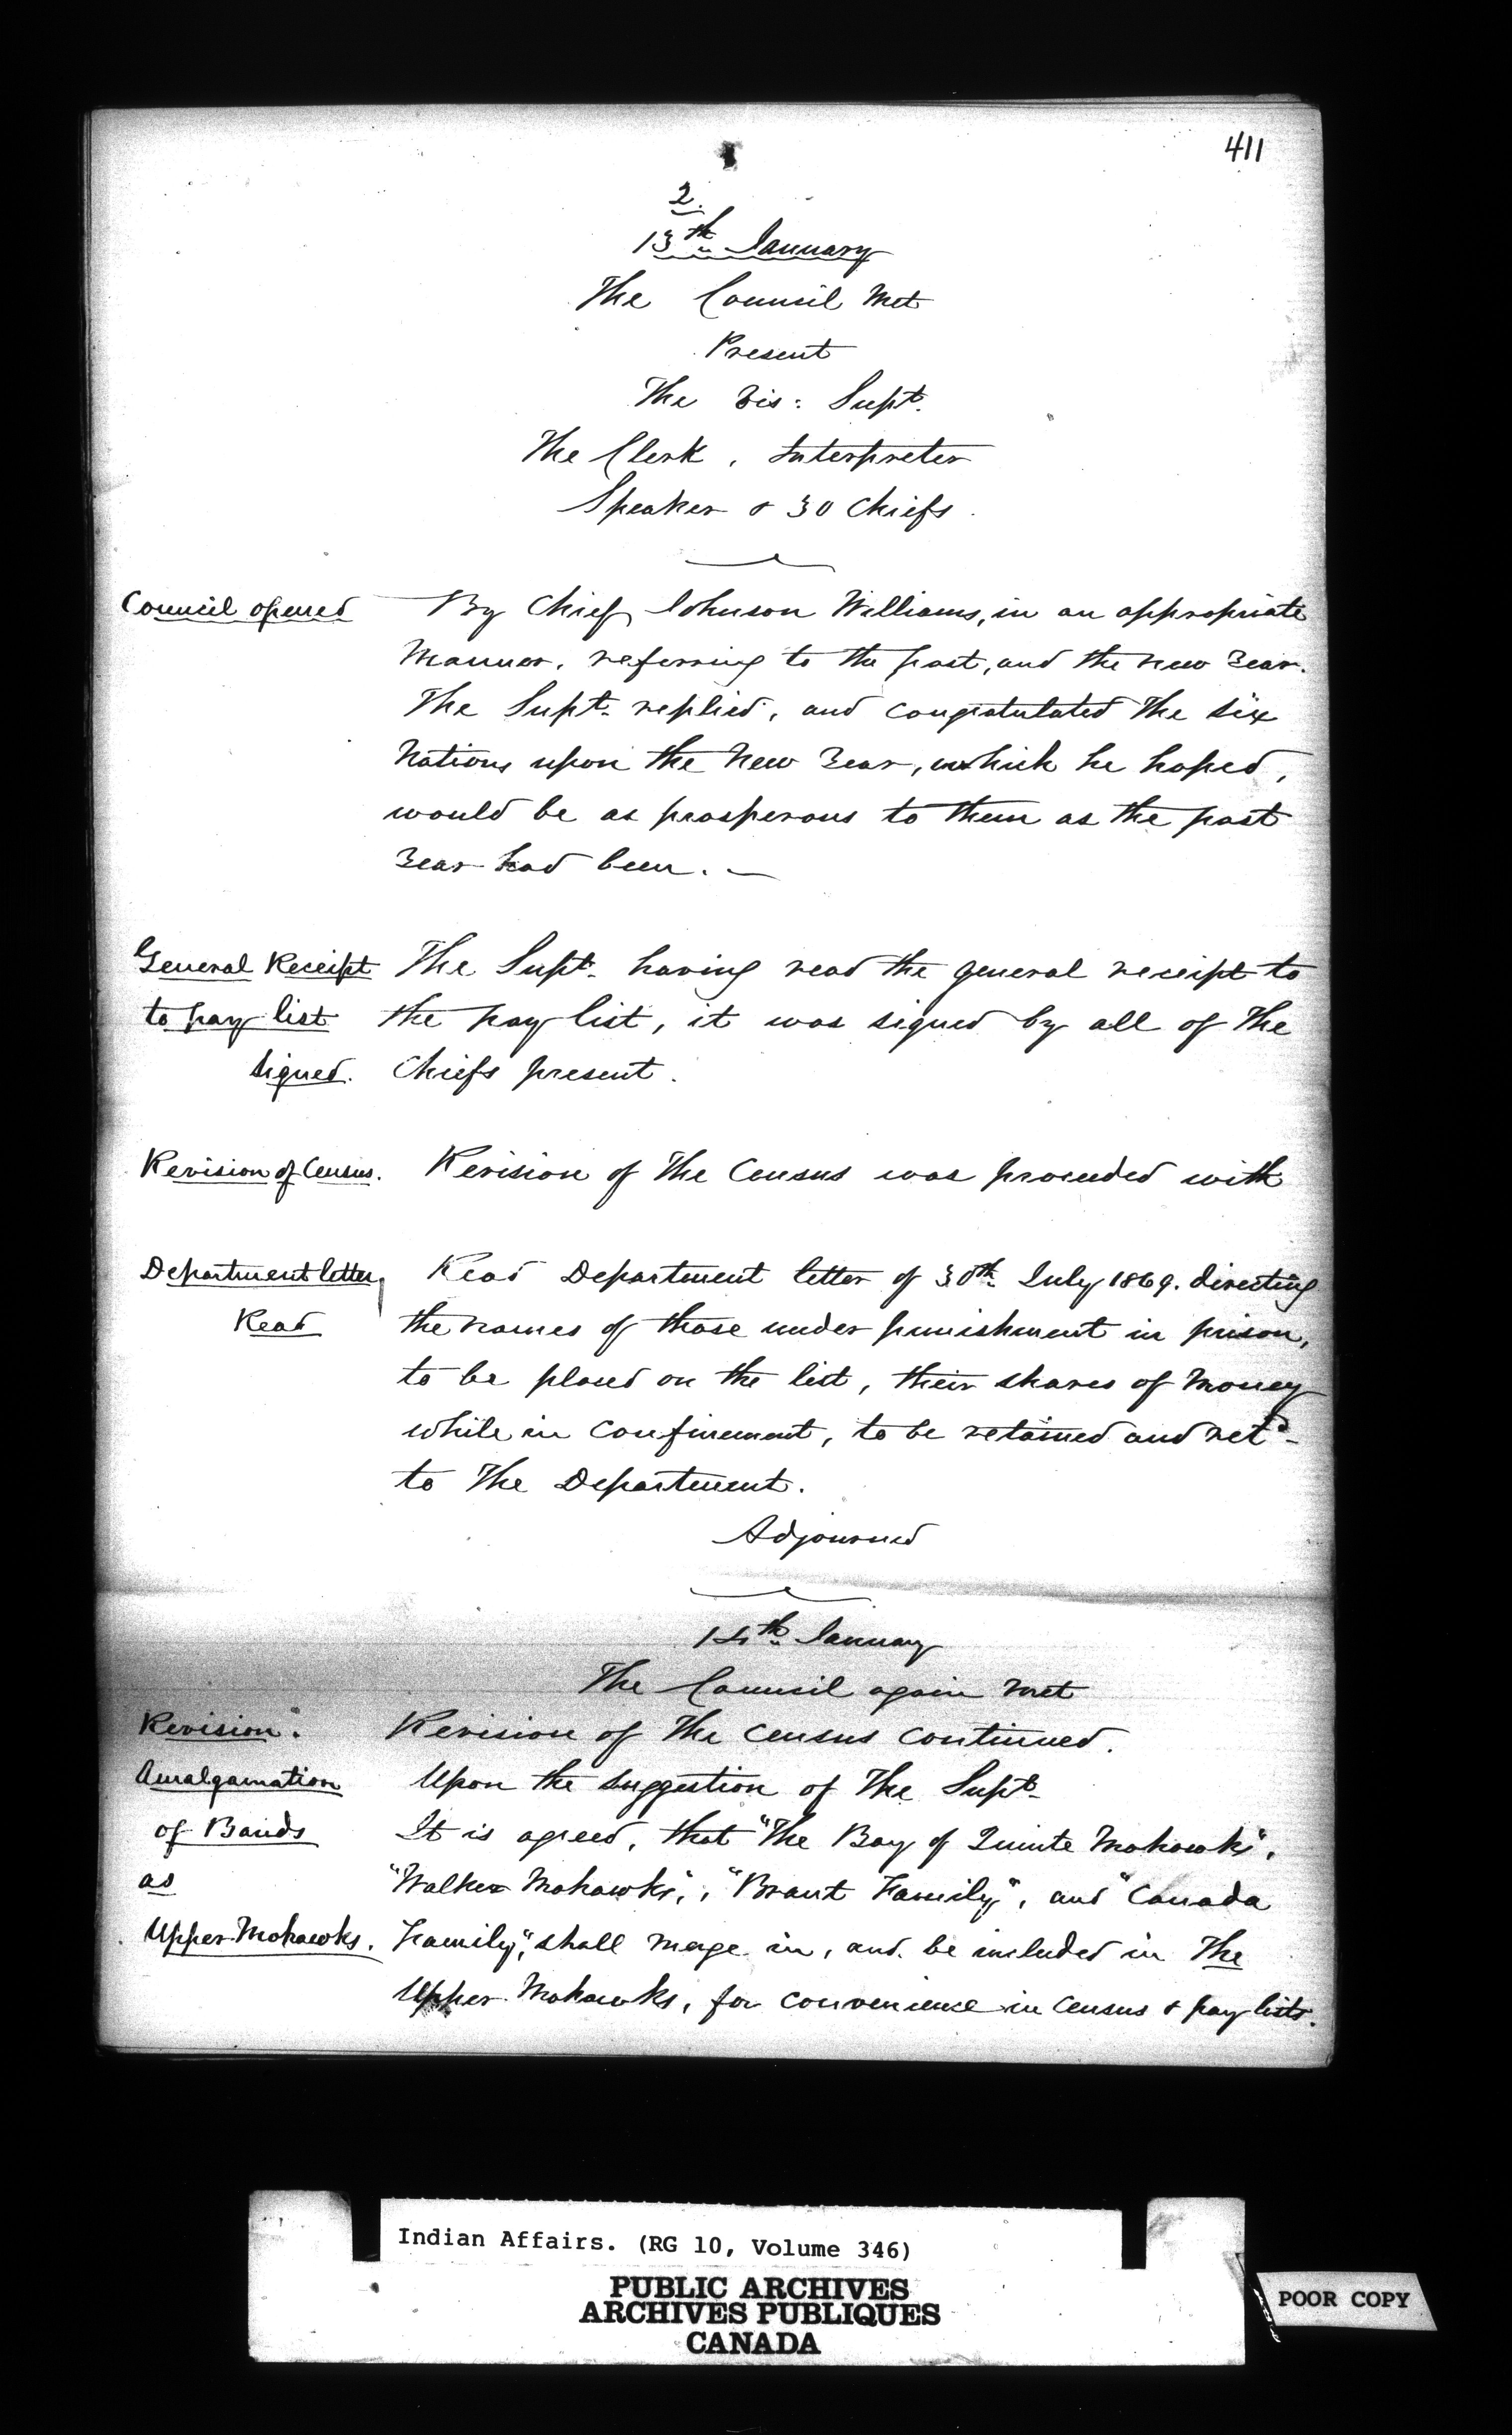 411
2.
13th January
The Council Met
Present
The Vis: Supt.
The Clerk, Interpreter
Speaker & 30 Chiefs.
Council opened By Chief Johnson Williams, in an appropriate
Manner, referring to the past, and the new Year.
The Supt. replied, and congratulated The Six
Nations upon the New Year, which he hoped,
would be as prosperous to them as the past
Year had been. —
General Receipt The Supt. having read the general receipt to
to pay list the pay list, it was signed by all of The
Signed. Chiefs present.
Revision of Census. Revision of The Census was proceeded with
Department letter Read Department letter of 30th July 1869. directing
Read the names of those under punishment in prison,
to be placed on the list, their shares of Money
while in Confinement, to be retained and retd
to The Department.
Adjourned
14th January
The Council again Met
Revision. Revision of The Census continued.
Amalgamation Upon the Suggestion of The Supt.
of Bands It is agreed, that "The Bay of Quinte Mohawks",
as "Walker Mohawks", "Brant Family", and "Canada
Upper Mohawks. Family", shall merge in, and be included in The
Upper Mohawks, for convenience in Census & pay lists.
Indian Affairs. (RG 10, Volume 346)
PUBLIC ARCHIVES
ARCHIVES PUBLIQUES
CANADA
POOR COPY